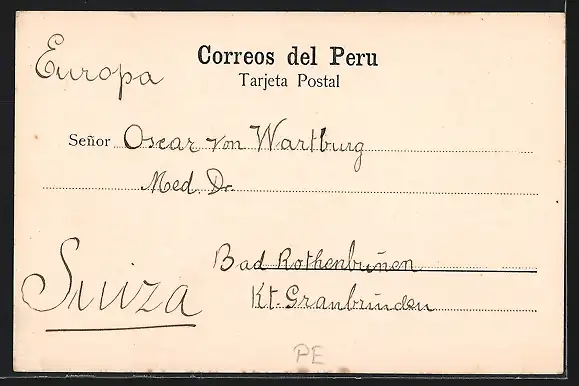 Europa
Correos del Peru
Tarjeta Postal
Señor Oscar von Wartburg
Med. Dr.
Bad Rothenbrunen
Suiza
Kt. Graubünden
PE